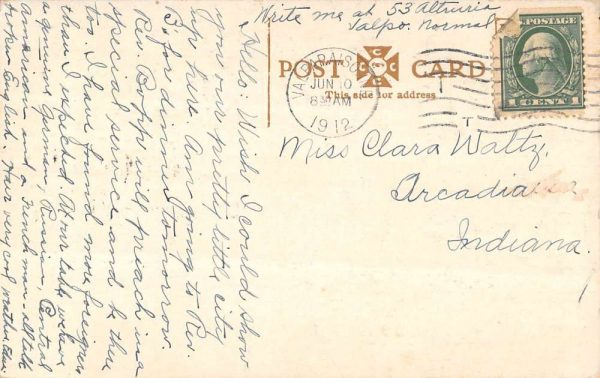 Write me at 53 Altruria
Valpo. Normal
POST CARD
This side for address
VALPARAISO
JUN 10
8 30 AM
1912
U.S. POSTAGE
1 CENT 1
T
Miss Clara Waltz,
Arcadia
Indiana.
Hello: Wish I could show
you our pretty little city
up here. Am going to Rev.
S. for dinner tomorrow.
Rev. will preach in a
special service and be there
too. I have found more foreigners
than I expected. At our table we have
a genuine German, Russian, Central
American and a Frenchman - all talk
broken English. Have very cool weather here.